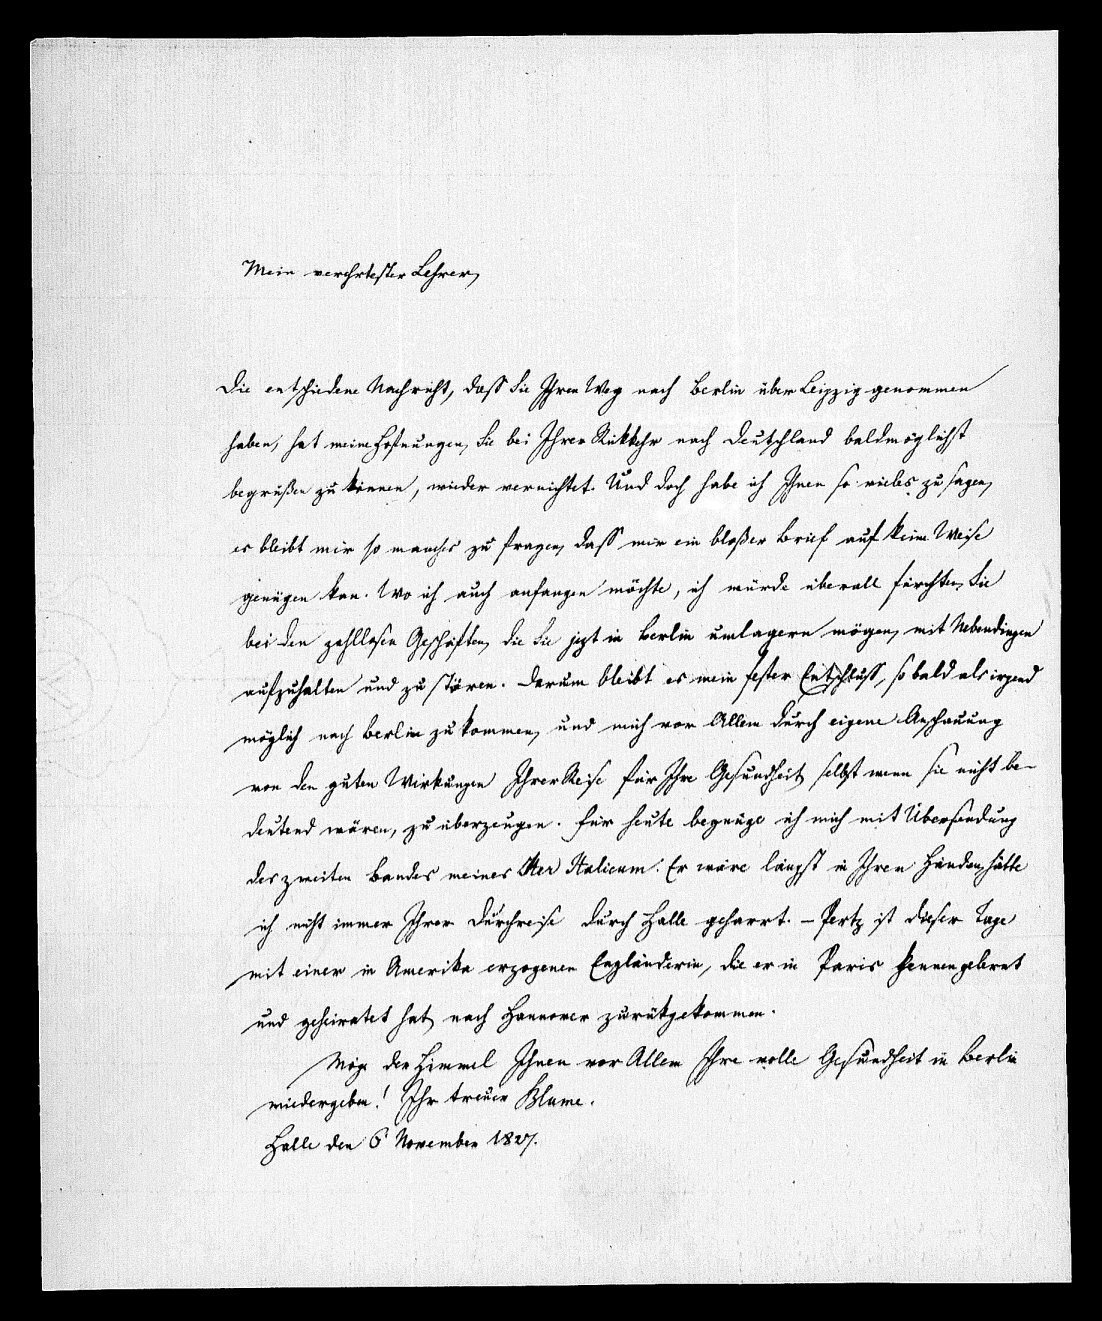 Mein verehrtester Lehrer,
Die entschiedene Nachricht, daß Sie Ihren Weg nach Berlin über Leipzig genommen
haben, hat meine Hofnungen, Sie bei Ihrer Rükkehr nach Deutschland baldmöglichst
begrüßen zu können, wieder vernichtet. Und doch habe ich Ihnen so vieles zu sagen,
es bleibt mir so manches zu fragen, daß mir ein bloßer Brief auf keine Weise
genügen kan. Wo ich auch anfangen möchte, ich würde überall fürchten, Sie
bei den zahllosen Geschäften, die Sie jezt in Berlin umlagern mögen, mit Nebendingen
aufzuhalten und zu stören. Darum bleibt es mein fester Entschluß, so bald als irgend
möglich nach Berlin zu kommen, und mich vor Allem durch eigene Anschauung
von den guten Wirkungen Ihrer Reise für Ihre Gesundheit, selbst wenn sie nicht be-
deutend wären, zu überzeugen. Für heute begnüge ich mich mit Übersendung
des zweiten Bandes meines Iter Italicum. Er wäre längst in Ihren Händen, hätte
ich nicht immer Ihrer Durchreise durch Halle geharrt. – Pertz ist dieser Tage
mit einer in Amerika erzogenen Engländerin, die er in Paris kennen gelernt
und geheiratet hat, nach Hannover zurükgekommen.
Möge der Himmel Ihnen vor Allem Ihre volle Gesundheit in Berlin
wiedergeben! Ihr treuer Blume.
Halle den 6 November 1827.